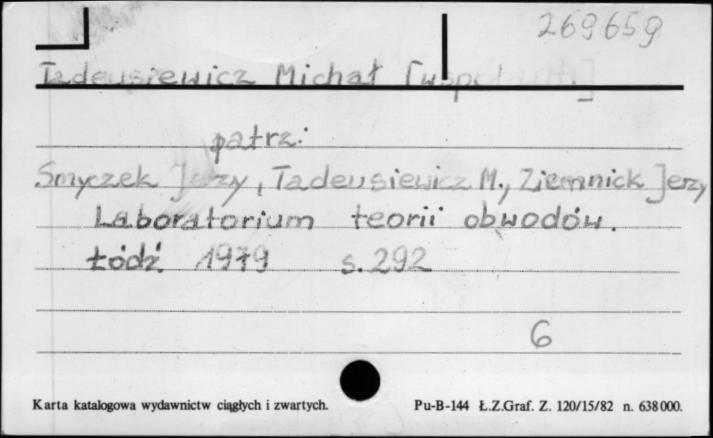 269659
Tadeusiewicz Michał [współaut.]
patrz:
Smyczek Jerzy, Tadeusiewicz M., Ziemnick Jerzy
Laboratorium teorii obwodów.
Łódź 1979 s. 292
6
Karta katalogowa wydawnictw ciągłych i zwartych. Pu-B-144 Ł.Z.Graf. Z. 120/15/82 n. 638000.